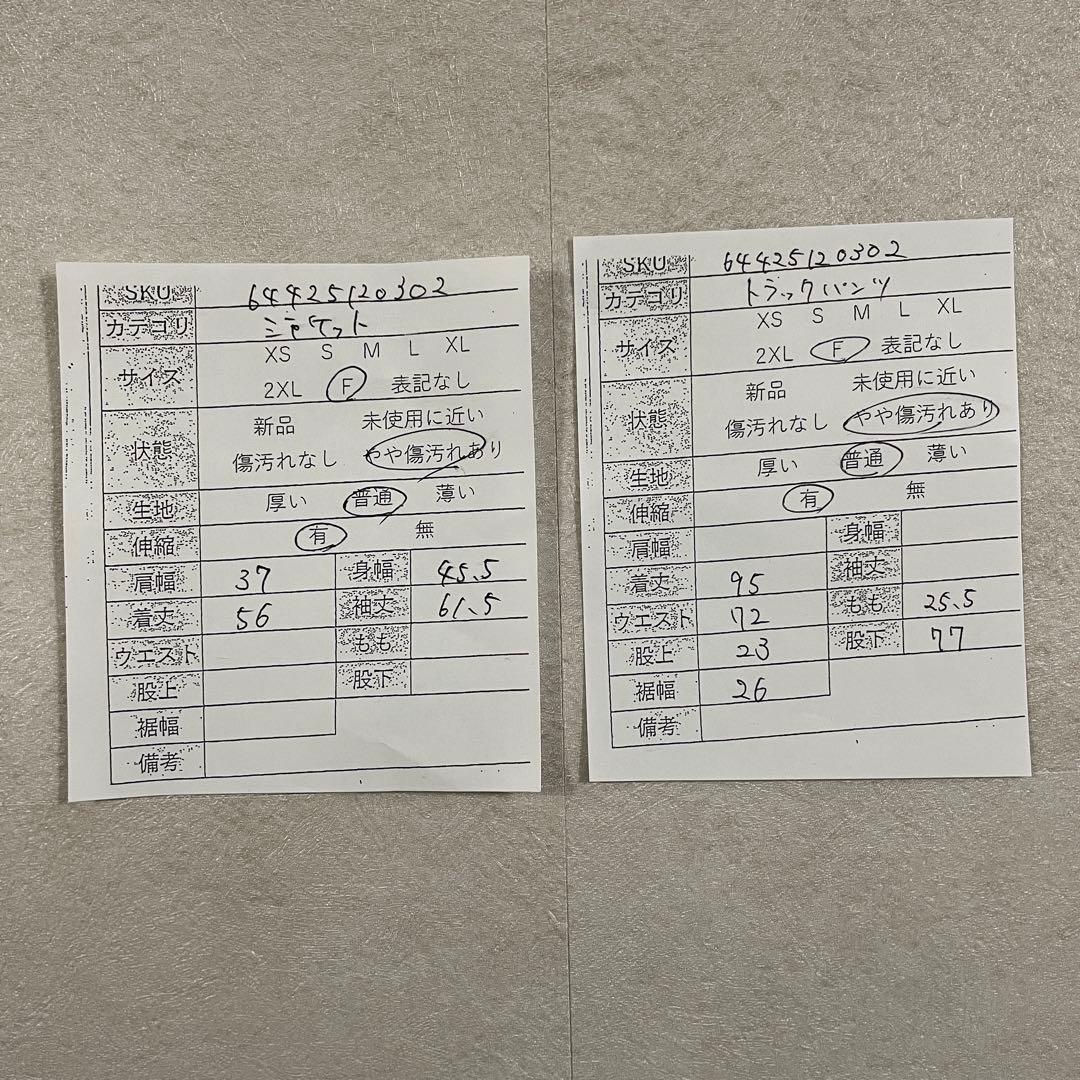 SKU 64425120302
カテゴリ ジャケット
サイズ XS S M L XL
2XL F 表記なし
状態 新品 未使用に近い
傷汚れなし やや傷汚れあり
生地 厚い 普通 薄い
伸縮 有 無
肩幅 37 身幅 45.5
着丈 56 袖丈 61.5
ウエスト もも
股上 股下
裾幅
備考
SKU 64425120302
カテゴリ トラックパンツ
サイズ XS S M L XL
2XL F 表記なし
状態 新品 未使用に近い
傷汚れなし やや傷汚れあり
生地 厚い 普通 薄い
伸縮 有 無
肩幅 身幅
着丈 95 袖丈
ウエスト 72 もも 25.5
股上 23 股下 77
裾幅 26
備考